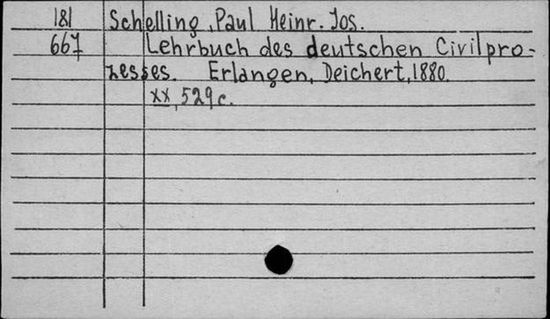 181 Schelling, Paul Heinr. Jos.
667 Lehrbuch des deutschen Civilpro-
zesses. Erlangen, Deichert, 1880.
XX, 529 c.